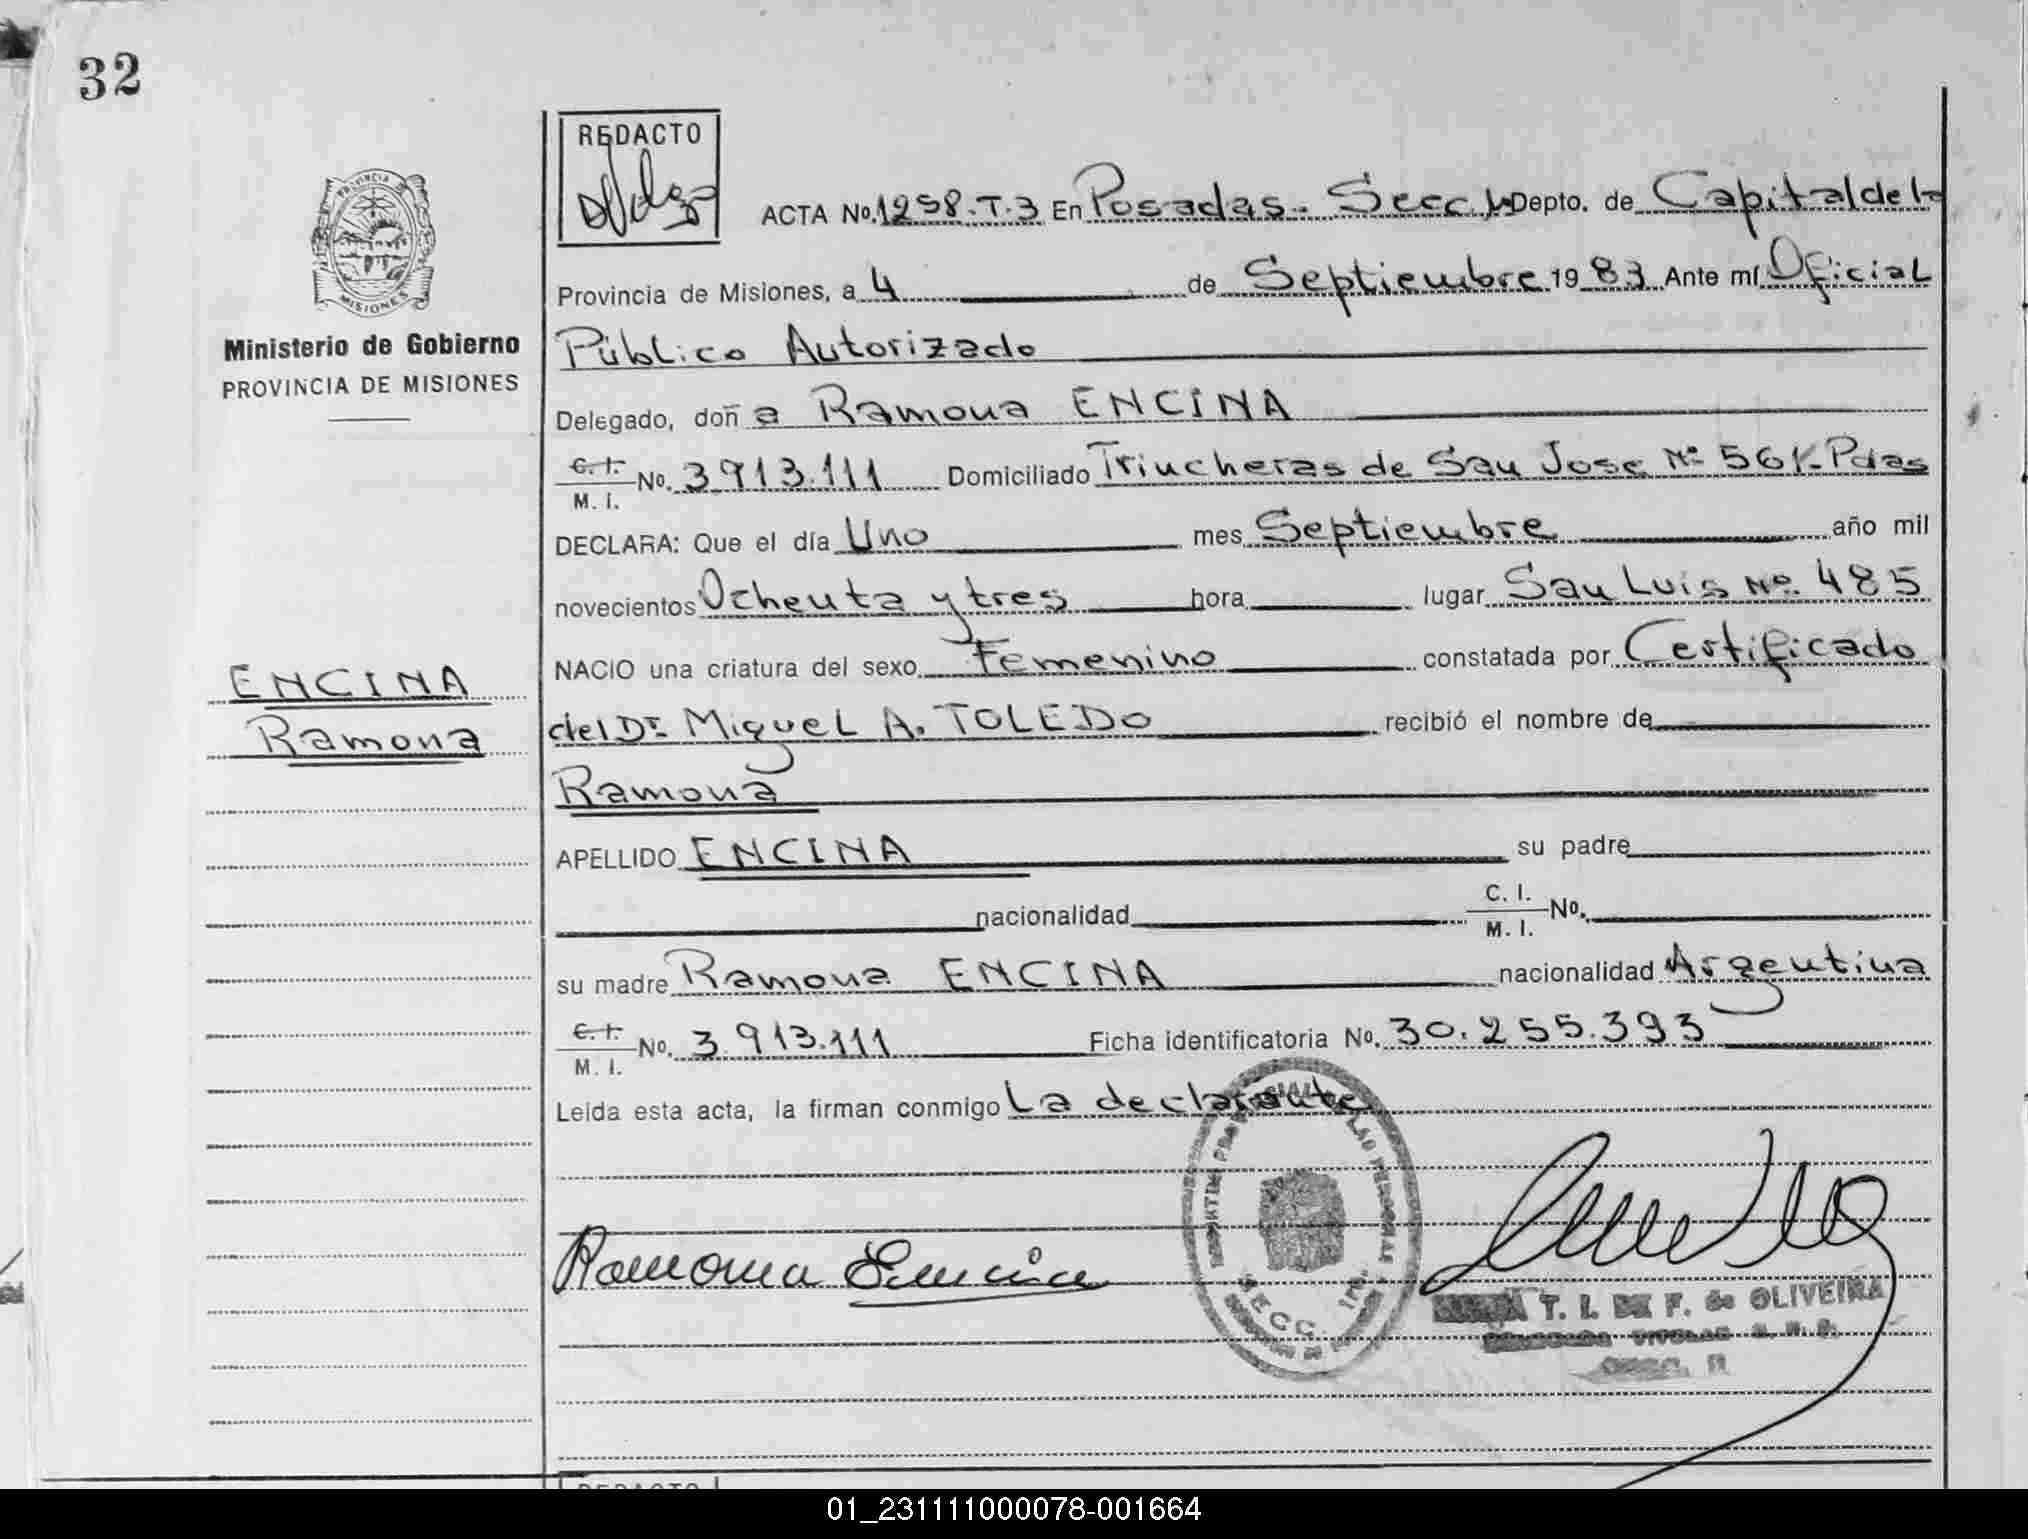 32
REDACTO
PROVINCIA DE
MISIONES
Ministerio de Gobierno
PROVINCIA DE MISIONES
ENCINA
Ramona
ACTA No. 1298.T.3 En Posadas. Secc 1ª Depto. de Capital de la
Provincia de Misiones, a 4 de Septiembre 1983 Ante mí Oficial
Público Autorizado
Delegado, doña Ramona ENCINA
C. I. M. I. No. 3.913.111 Domiciliado Trincheras de San Jose Nº 561-Pdas
DECLARA: Que el día Uno mes Septiembre año mil
novecientos Ochenta y tres hora lugar San Luis Nº. 485
NACIO una criatura del sexo Femenino constatada por Certificado
del Dr. Miguel A. TOLEDO recibió el nombre de
Ramona
APELLIDO ENCINA su padre
nacionalidad C. I. M. I. No.
su madre Ramona ENCINA nacionalidad Argentina
C. I. M. I. No. 3.913.111 Ficha identificatoria No. 30.255.393
Leida esta acta, la firman conmigo La declarante
Ramona Encina
SECC. 1ra.
T. I. DE F. de OLIVEIRA
REDACTO
01_231111000078-001664